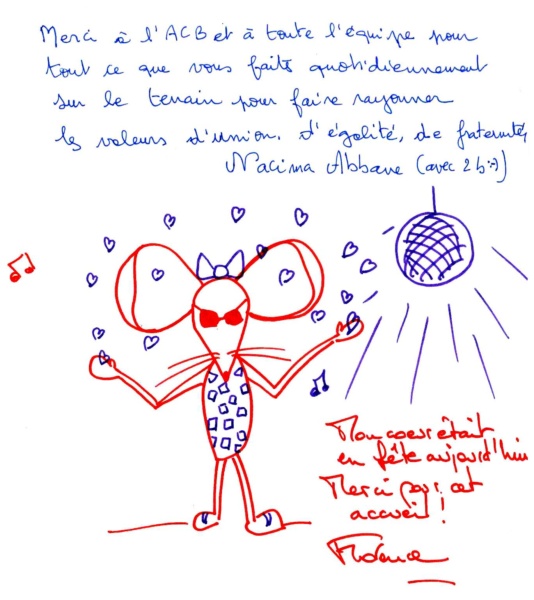 Merci à l'ACB et à toute l'équipe pour
tout ce que vous faits quotidiennement
sur le terrain pour faire rayonner
les valeurs d'union, d'égalité, de fraternité,
Nacima Abbane (avec 2 b :-))
Mon coeur était
en fête aujourd'hui
Merci pour cet
accueil !
Florence